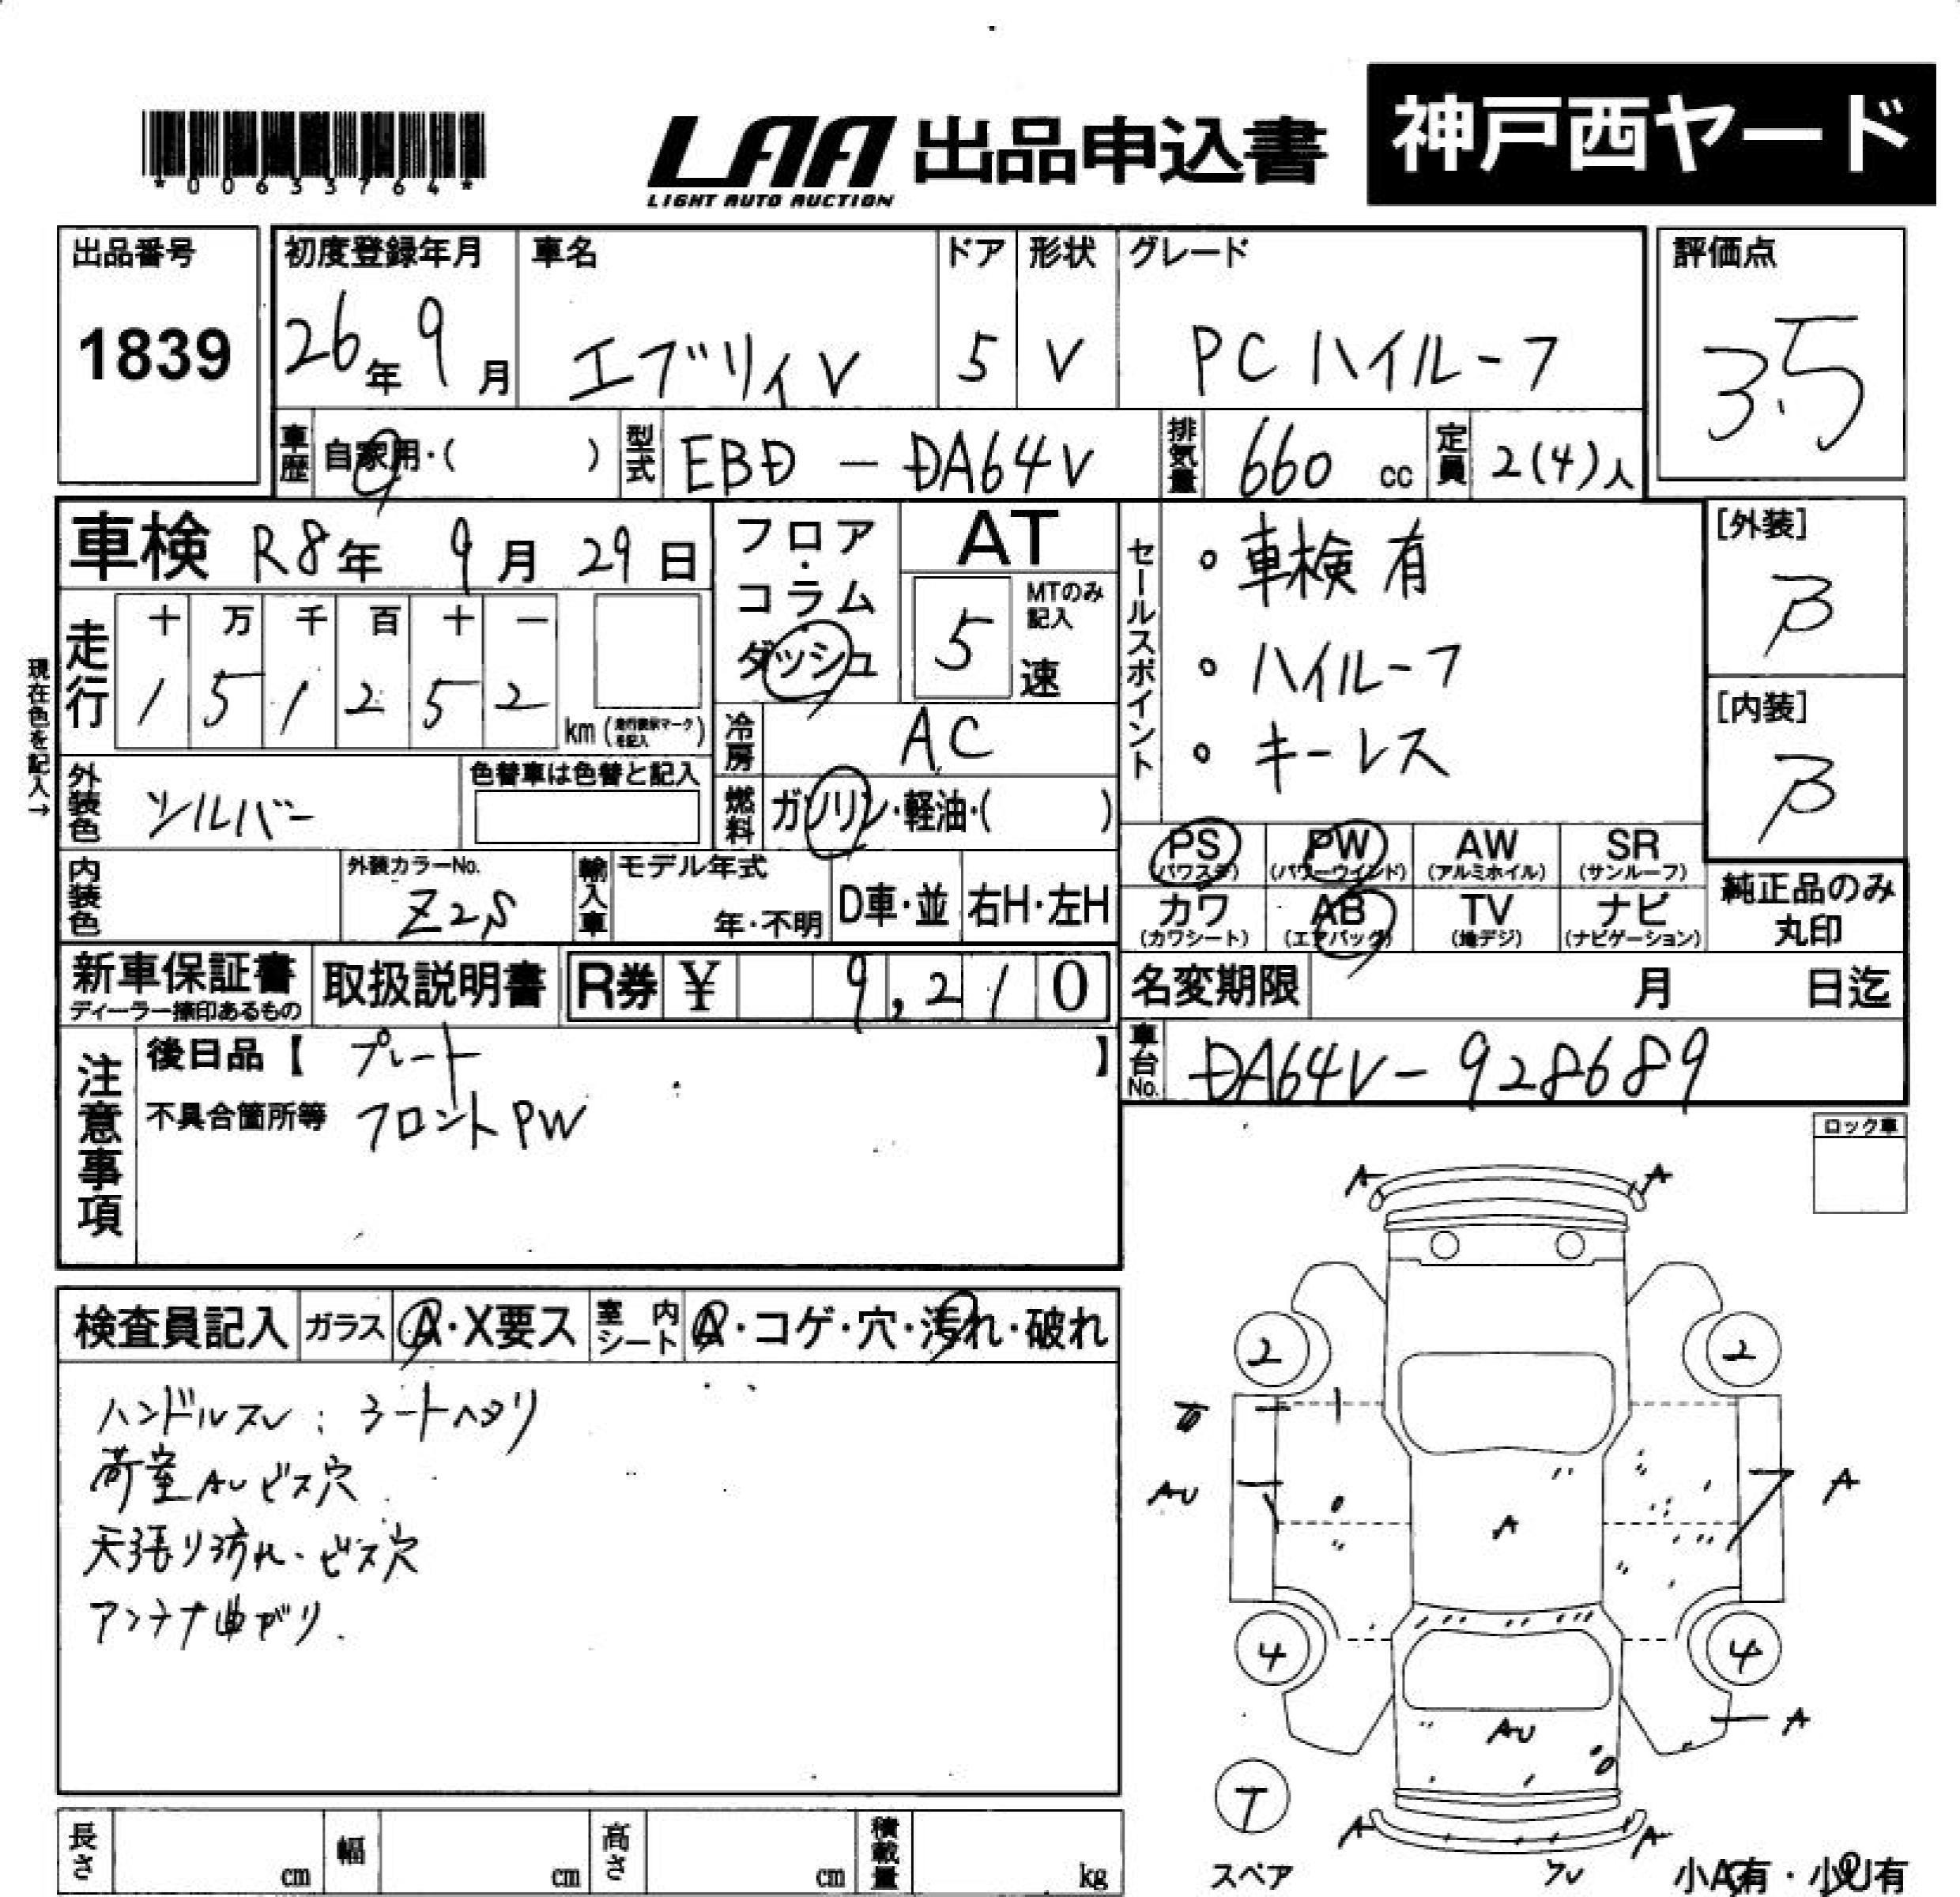 *00633764*
LAA 出品申込書
LIGHT AUTO AUCTION
神戸西ヤード
出品番号
1839
初度登録年月
26年 9月
車名
エブリィV
ドア
5
形状
V
グレード
PC ハイルーフ
評価点
3.5
車歴 自家用・( )
型式 EBD - DA64V
排気量 660 cc
定員 2(4)人
車検 R8年 9月 29日
現在色を記入→
走行
十 万 千 百 十 一
1 5 1 2 5 2
km (走行表示マークを記入)
フロア・コラム・ダッシュ
AT
5 速
MTのみ記入
冷房 AC
燃料 ガソリン・軽油・( )
外装色 シルバー
色替車は色替と記入
内装色
外装カラーNo.
Z2S
輸入車 モデル年式
年・不明
D車・並
右H・左H
セールスポイント
・車検有
・ハイルーフ
・キーレス
[外装]
B
[内装]
B
PS (パワステ)
PW (パワーウインド)
AW (アルミホイル)
SR (サンルーフ)
カワ (カワシート)
AB (エアバッグ)
TV (地デジ)
ナビ (ナビゲーション)
純正品のみ
丸印
新車保証書
ディーラー捺印あるもの
取扱説明書
R券 ¥ 9,210
名変期限 月 日迄
車台No. DA64V-928689
注意事項
後日品【 プレート 】
不具合箇所等 フロントPW
ロック車
検査員記入
ガラス A・X要ス
室内シート A・コゲ・穴・汚れ・破れ
ハンドルスレ : シートヘタリ
荷室AUビス穴
天張り汚れ・ビス穴
アンテナ曲がり.
A A
2 2
AU A
A
4 4
AU A
T
スペア
A A
小A有・小U有
長さ cm
幅 cm
高さ cm
積載量 kg